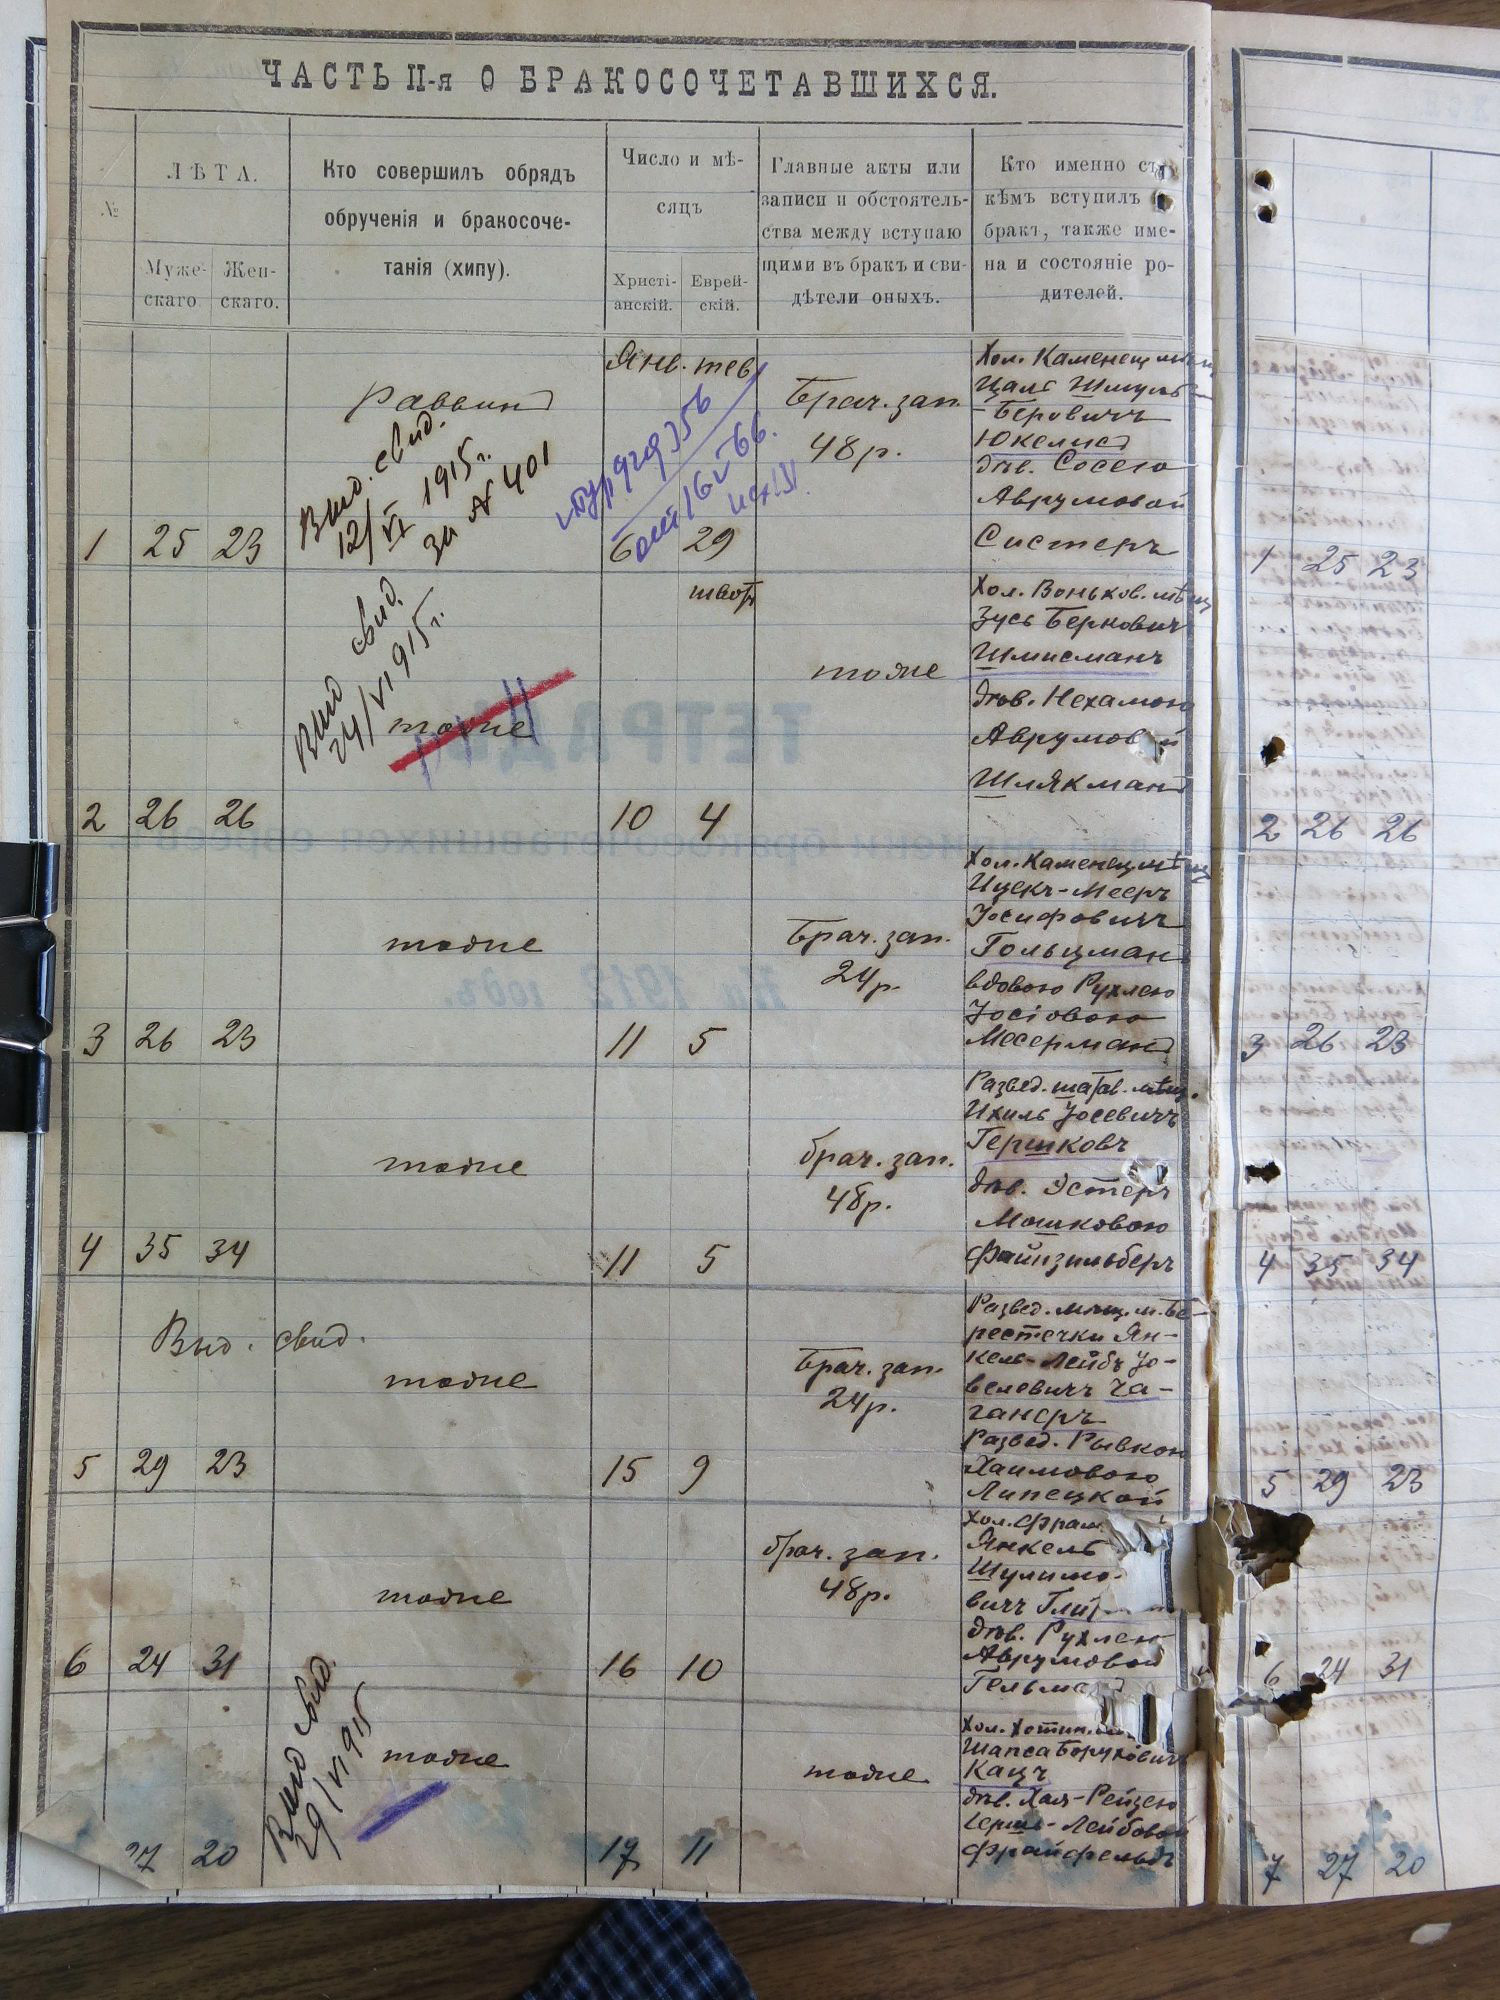 ЧАСТЬ II-я О БРАКОСОЧЕТАВШИХСЯ.
№
ЛѢТА.
Муже-
скаго
Жен-
скаго.
Кто совершилъ обрядъ
обрученія и бракосоче-
танія (хипу).
Число и мѣ-
сяцъ
Христі-
анскій.
Еврей-
скій.
Главные акты или
записи и обстоятель-
ства между вступаю
щими въ бракъ и сви-
дѣтели оныхъ.
Кто именно съ
кѣмъ вступилъ
бракъ, также име-
на и состояніе ро-
дителей.
1 25 23
Раввинъ
Выд. свид.
12/VI 1915 г.
за № 401
Янв. тев.
6 29
Брач. зап.
48 р.
Хол. Каменец
Цаль Шмуль-
-Беровичъ
Юкелисъ
дѣв. Сосею
Аврумовой
Систеръ
2 26 26
Выд свид.
24/VI 915 г.
тоже
10 4
тоже
Хол. Воньков. мѣщ
Зусь Берковичъ
Шмисманъ
дѣв. Нехамою
Аврумовой
Шлякманъ
3 26 23
тоже
11 5
Брач. зап.
24 р.
Хол. Каменец мѣщ
Ицекъ-Мееръ
Іосифовичъ
Гольцманъ
вдовою Рухлею
Іосіовою
Месерманъ
4 35 34
тоже
11 5
брач. зап.
48 р.
Развед. шатав. мѣщ.
Ихиль Іосевичъ
Гершковъ
дѣв. Эстеръ
Мошковою
Файнзильберъ
5 29 23
Выд. свид.
тоже
15 9
Брач. зап.
24 р.
Развед. мѣщ. м. Бе-
рестечки Ян-
кель-Лейбъ Іо-
велевичъ Ча-
ганеръ
Развед. Рывкою
Хаимовою
Липецкой
6 24 31
тоже
16 10
брач. зап.
48 р.
Хол. Фрам
Янкель
Шулимо-
вичъ
дѣв. Рухлею
Аврумовой
Гельман
27 20
Выд свид.
29/VI 915
тоже
17 11
тоже
Хол. Хотин.
Шапса Борухович
Кацъ
дѣв. Хая-Рейзею
Герш-Лейбовой
Фрайфельдъ
1 25 23
2 26 26
3 26 23
4 35 34
5 29 23
6 24 31
7 27 20